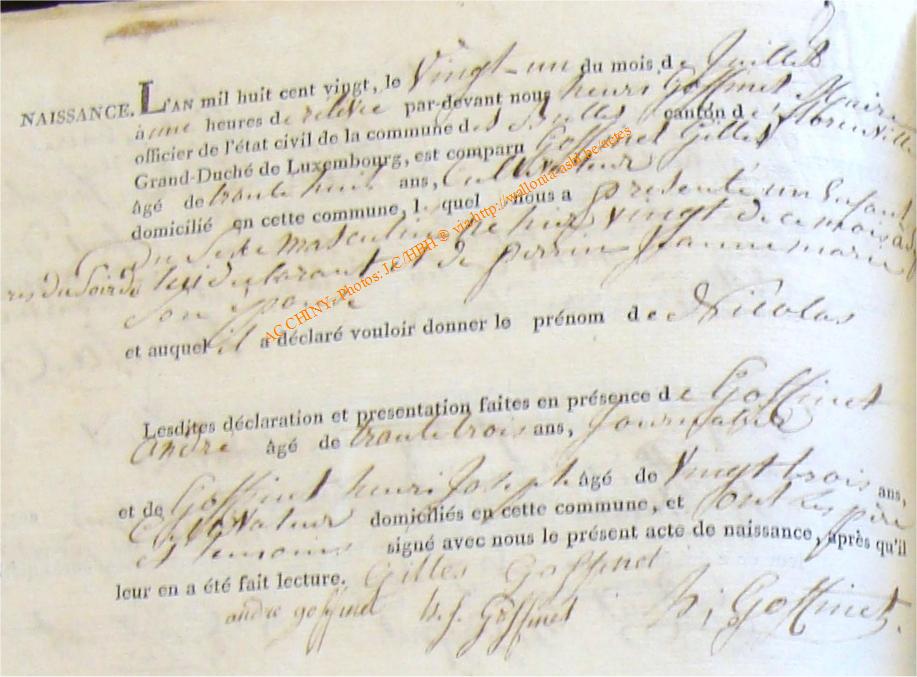 NAISSANCE. L'AN mil huit cent vingt, le Vingt-un du mois de Juillet
à une heures de relevée par-devant nous henri Goffinet Maire
officier de l'état civil de la commune des Bulles canton de florenville
Grand-Duché de Luxembourg, est comparu Goffinet Gilles
âgé de trante huit ans, Cultivateur
domicilié en cette commune, lequel nous a présenté un Enfant
Du Sexe masculin né hier vingt de ce mois à
res du Soir de lui declarant et de perrin Jeanne marie
Son Epouse
et auquel il a déclaré vouloir donner le prénom de Nicolas
Lesdites déclaration et presentation faites en présence de Goffinet
andré âgé de trante trois ans, Journalié
et de Goffinet henri Joseph âgé de Vingt trois ans,
Cultivateur domiciliés en cette commune, et ont Les père
et temoins signé avec nous le présent acte de naissance, après qu'il
leur en a été fait lecture. Gilles Goffinet
andré goffinet h. j. Goffinet h; Goffinet.
AC CHINY - Photos: J.C/HBH ® via http://wallonia-asbl.be/actes